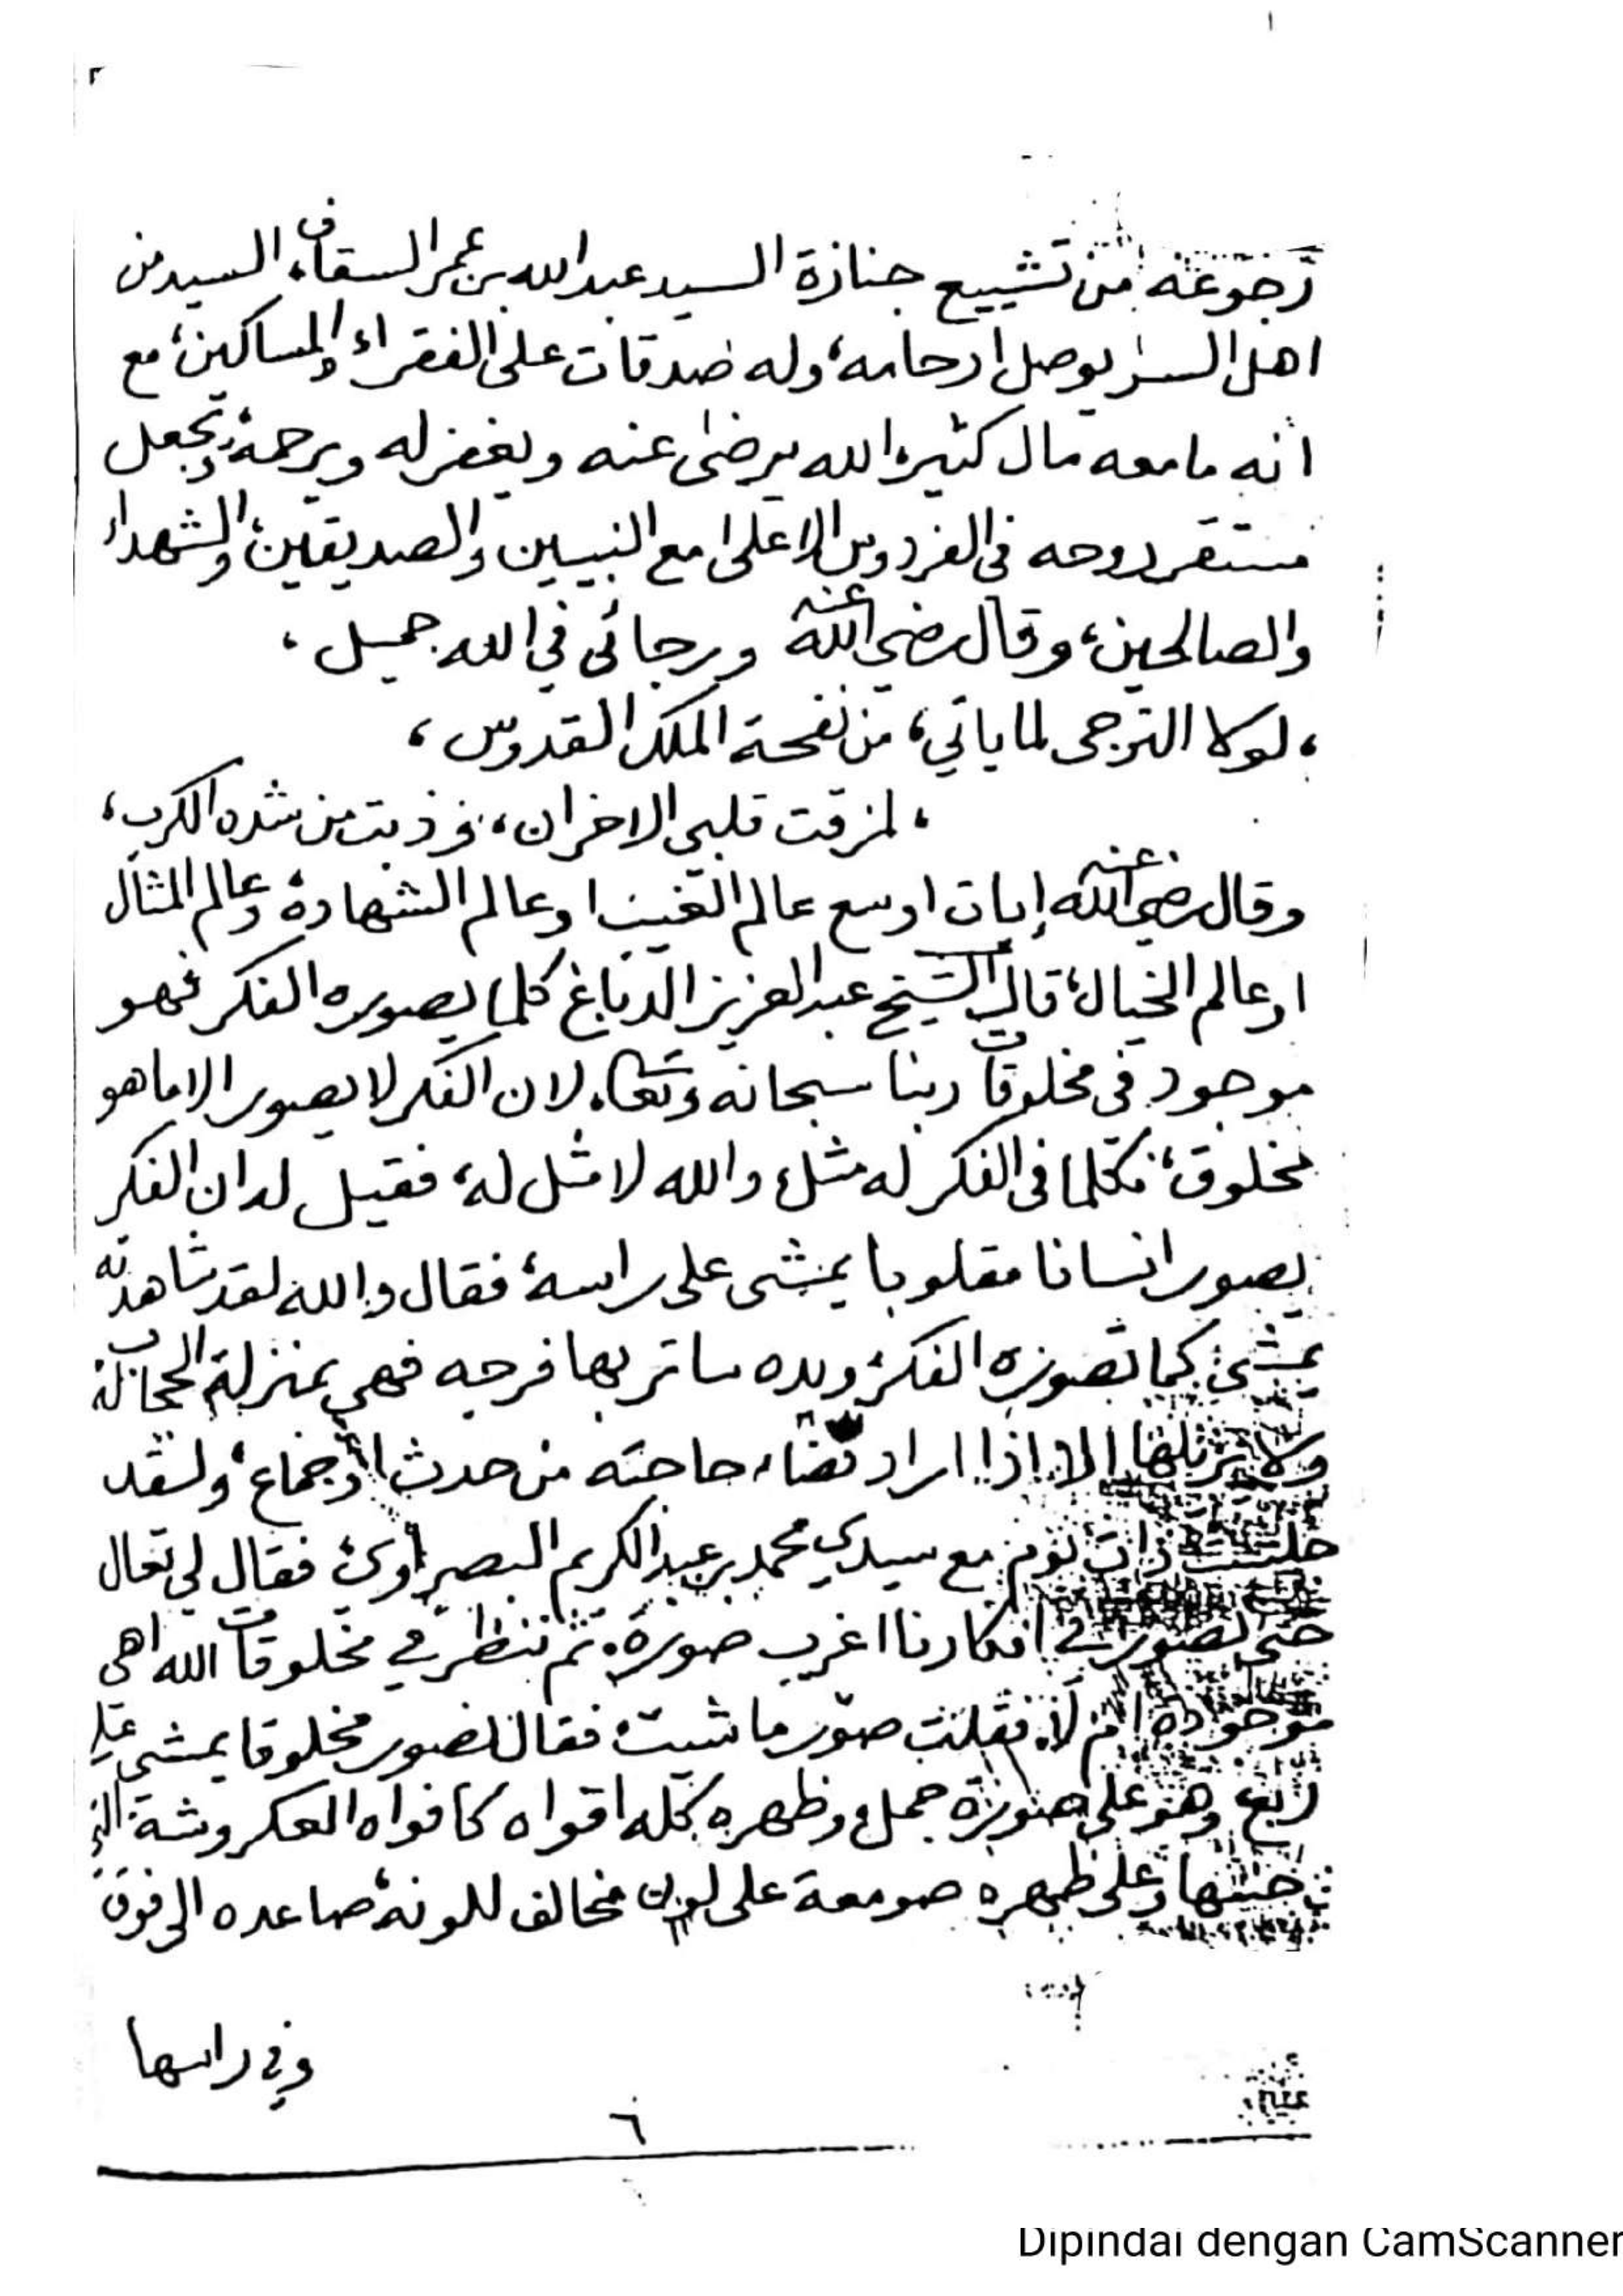 رجوعه من تشييع جنازة السيد عبدالله بن عمر السقاف، السيد من
اهل السر يوصل ارحامه، وله صدقات على الفقراء والمساكين، مع
انه مامعه مال كثير، الله يرضى عنه ويغفر له ويرحمه، ويجعل
مستقر روحه في الفردوس الاعلى مع النبيين والصديقين، والشهداء
والصالحين، وقال رضي الله عنه ورجائي في الله جميل،
، لولا الترجى لما ياتي، من نفحة الملك القدوس،
، لمزقت قلبي الاحزان، وذبت من شده الكرب،
وقال رضي الله عنه اوسع عالم الغيب او عالم الشهادة وعالم المثال
او عالم الخيال، قال الشيخ عبدالعزيز الدباغ كلما يصوره الفكر فهو
موجود في مخلوقات ربنا سبحانه وتعا، لان الفكر لا يصور الا ماهو
مخلوق، فكلما في الفكر له مثل، والله لا مثل له، فقيل له ان الفكر
يصور انسانا مقلوبا يمشى على راسه، فقال والله لقد شاهدته
يمشى كما تصوره الفكر، ويده ساتر بها فرجه فهي بمنزلة الحجاب له
ولا يزيلها الا اذا اراد قضاء حاجته من حدث اوجماع، ولقد
جلست ذات يوم مع سيدي محمد بن عبدالكريم البصراوي، فقال لي تعال
حتى نصور في افكارنا اغرب صورة، ثم ننظر في مخلوقات الله اهى
موجودة ام لا، فقلت صور ما شيت، فقال نصور مخلوقا يمشى على
اربع، وهو على صورة جمل، وظهره كله افواه كافواه العكروشة التي
وعلى ظهره صومعة على لون مخالف للونه، صاعده الى فوق
وفي راسها
٦
Dipindai dengan CamScanner